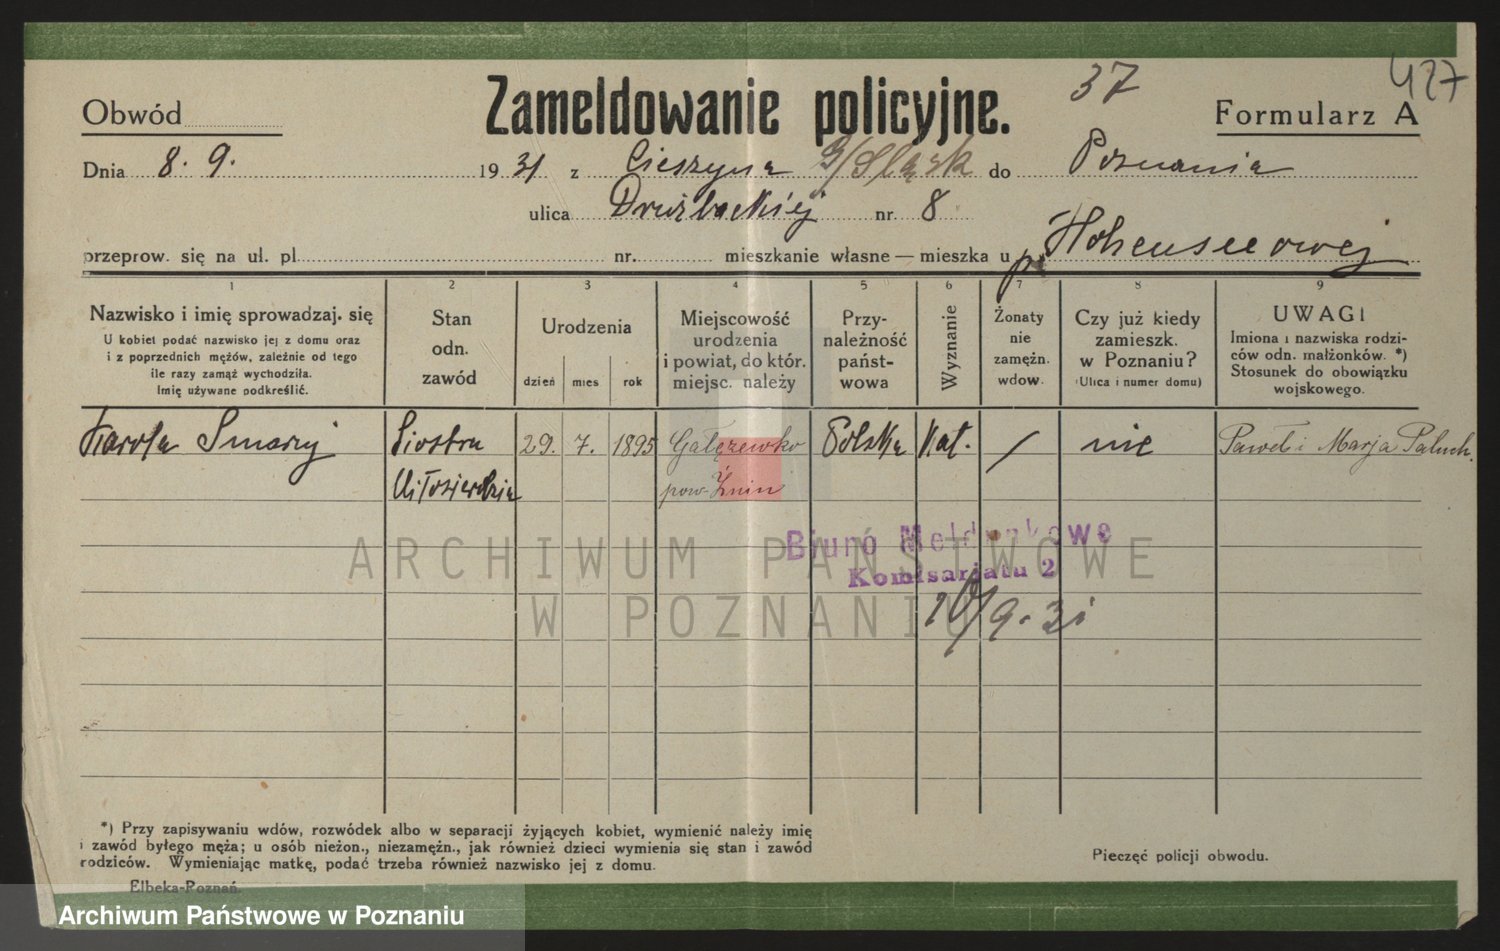 37
427
Obwód
Zameldowanie policyjne.
Formularz A
Dnia 8. 9. 1931 z Cieszyna G/Śląsk do Poznania
ulica Drużbackiej nr. 8
przeprow. się na ul. pl. nr. mieszkanie własne — mieszka u p. Hohenseeowej
1 2 3 4 5 6 7 8 9
Nazwisko i imię sprowadzaj. się
U kobiet podać nazwisko jej z domu oraz
i z poprzednich mężów, zależnie od tego
ile razy zamąż wychodziła.
Imię używane podkreślić.
Stan
odn.
zawód
Urodzenia
dzień mies rok
Miejscowość
urodzenia
i powiat, do któr.
miejsc. należy
Przy-
należność
państ-
wowa
Wyznanie
Żonaty
nie
zamężn.
wdow.
Czy już kiedy
zamieszk.
w Poznaniu?
(Ulica i numer domu)
UWAGI
Imiona i nazwiska rodzi-
ców odn. małżonków. *)
Stosunek do obowiązku
wojskowego.
Karola Smarzy Siostra 29. 7. 1895 Gałęzewko Polska Kat. / nie Paweł i Marja Paluch.
Miłosierdzia pow. Żnin
Biuro Meldunkowe
Komisarjatu 2
10/9. 31
ARCHIWUM PAŃSTWOWE
W POZNANIU
*) Przy zapisywaniu wdów, rozwódek albo w separacji żyjących kobiet, wymienić należy imię
i zawód byłego męża; u osób nieżon., niezamężn., jak również dzieci wymienia się stan i zawód
rodziców. Wymieniając matkę, podać trzeba również nazwisko jej z domu.
Pieczęć policji obwodu.
Elbeka-Poznań.
Archiwum Państwowe w Poznaniu